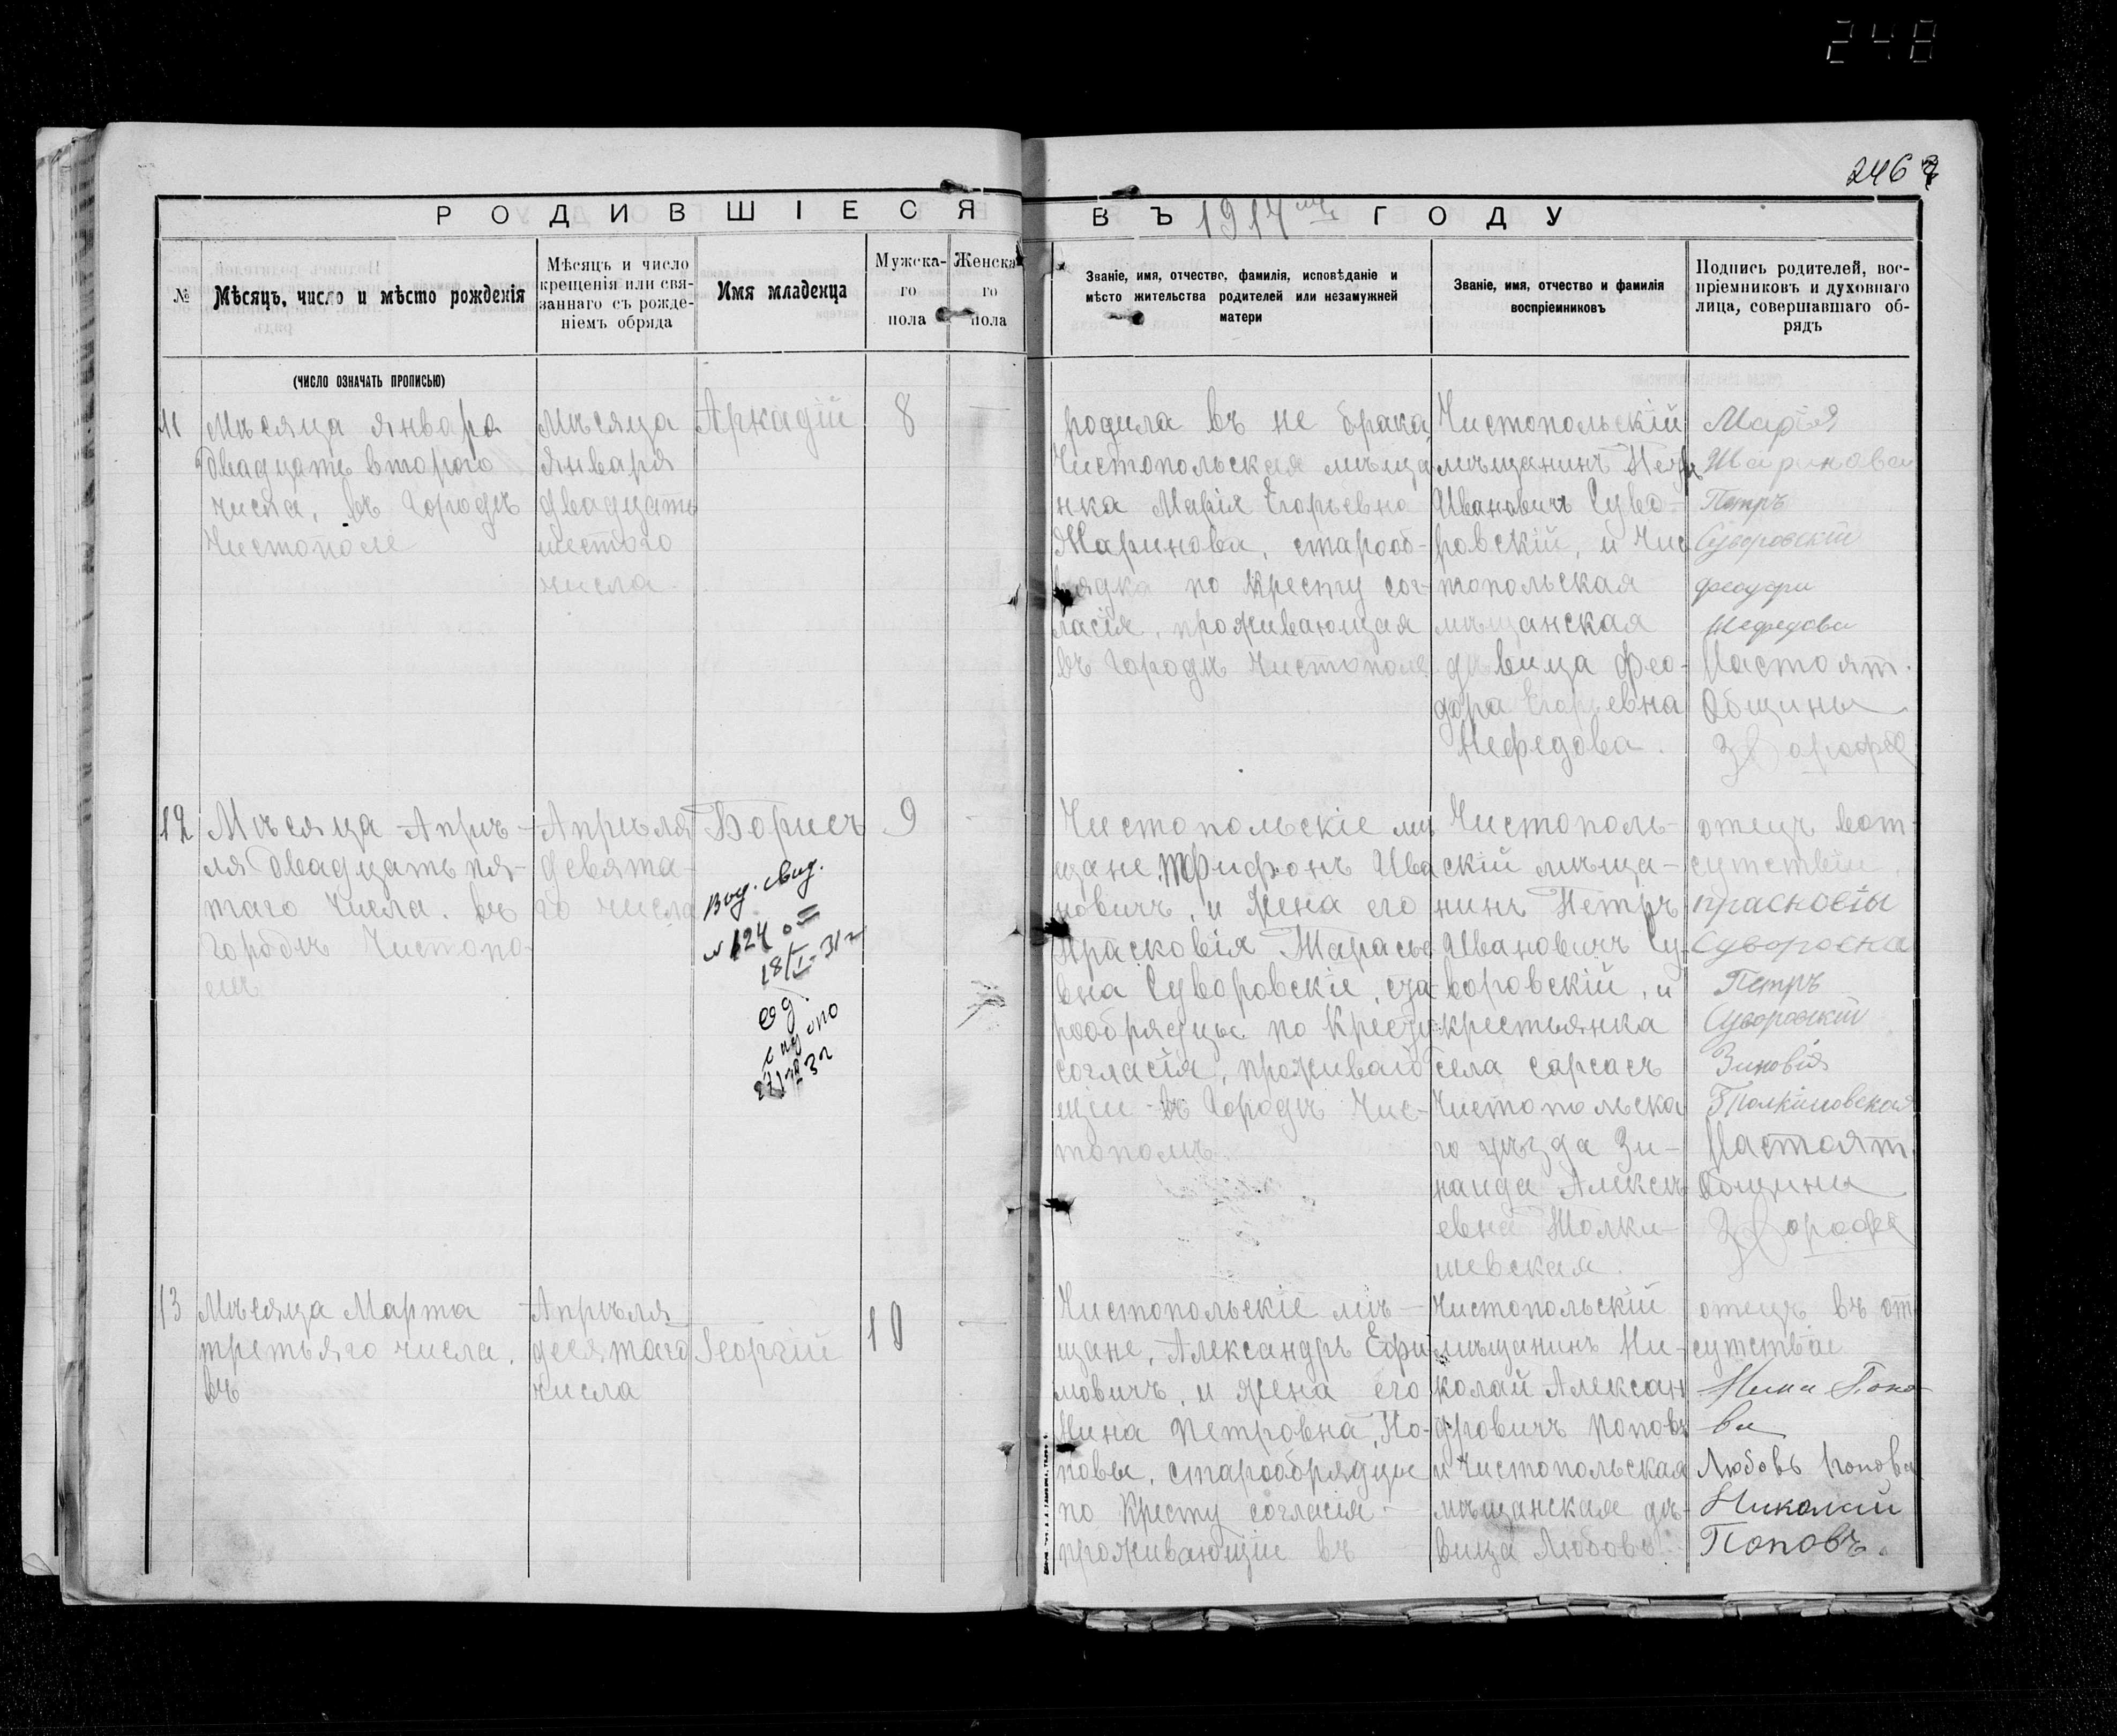 248
246
РОДИВШІЕСЯ ВЪ 1914 ГОДУ
№
Мѣсяцъ, число и мѣсто рожденія
Мѣсяцъ и число
крещенія или свя-
заннаго съ рожде-
ніемъ обряда
Имя младенца
Мужска-
го
пола
Женска
го
пола
Званіе, имя, отчество, фамилія, исповѣданіе и
мѣсто жительства родителей или незамужней
матери
Званіе, имя, отчество и фамилія
воспріемниковъ
Подпись родителей, вос-
пріемниковъ и духовнаго
лица, совершавшаго об-
рядъ
(ЧИСЛО ОЗНАЧАТЬ ПРОПИСЬЮ)
11
Мѣсяца января
двадцать второго
числа, въ городѣ
Чистополе
Мѣсяца
января
двадцать
шестого
числа.
Аркадій
8
родила въ не брака
Чистопольская мѣща
нка Марія Егорьевна
Маринова, старооб-
рядка по кресту сог-
ласія, проживающая
въ городѣ Чистополе
Чистопольскій
мѣщанинъ Петръ
Ивановичъ Суво-
ровскій, и Чис
топольская
мѣщанская
дѣвица Фео-
дора Егорьевна
Нефедова.
Марія
Петръ
Суворовскій
Нефедова
Настоят.
Общины
12
Мѣсяца Апрѣ-
ля двадцать пя-
таго числа. въ
городѣ Чистопо-
лѣ
Апрѣля
девята-
го числа
Борисъ
9
Выд. свид.
№ 124
18/I-31г
Чистопольскіе мѣ
щане, Трифонъ Ива
новичъ, и жена его
Прасковія Тарасье
вна Суворовскіе, ста-
рообрядцы по кресту
согласія, проживаю
щіи въ городѣ Чис-
тополѣ
Чистополь-
скій мѣща-
нинъ Петръ
Ивановичъ Су-
воровскій, и
крестьянка
села сарсасъ
Чистопольска
го уѣзда Зи-
наида Алексѣ
евна Толки-
шевская.
отецъ вот-
сутствіи
Петръ
Суворовскій
Зиновія
Настоят.
Общины
13
Мѣсяца Марта
третьяго числа,
въ
Апрѣля
десятаго
числа
Георгій
10
Чистопольскіе мѣ-
щане, Александръ Ефи
мовичъ, и жена его
Нина Петровна, По-
повы, старообрядцы
по кресту согласія
проживающіи въ
Чистопольскій
мѣщанинъ Ни-
колай Алексан
дровичъ Поповъ
и Чистопольская
мѣщанская дѣ-
вица Любовь
отецъ въ от
сутствіи
Нина Попо-
ва
Любовь Попова
Николай
Поповъ.